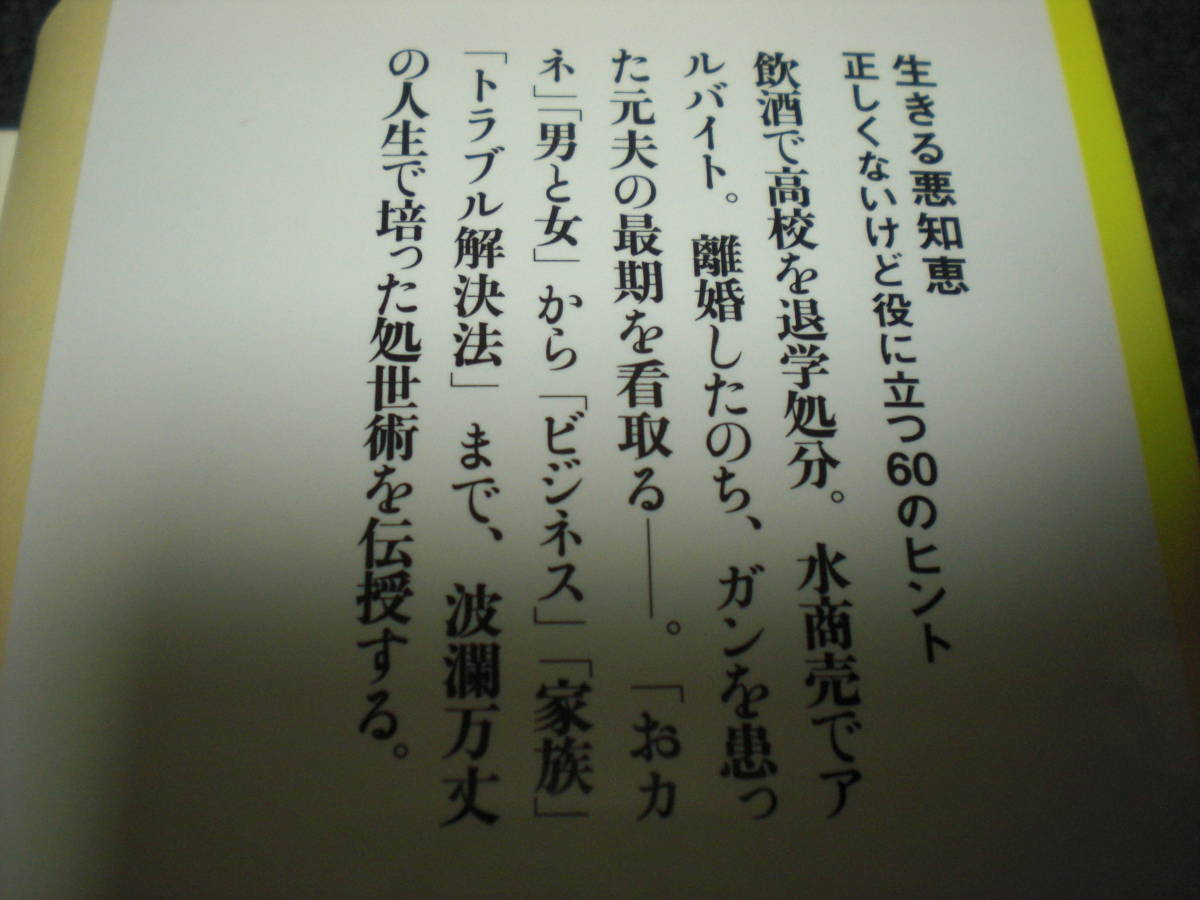 生きる悪知恵
正しくないけど役に立つ60のヒント
飲酒で高校を退学処分。水商売でア
ルバイト。離婚したのち、ガンを患っ
た元夫の最期を看取る――。「おカ
ネ」「男と女」から「ビジネス」「家族」
「トラブル解決法」まで、波瀾万丈
の人生で培った処世術を伝授する。